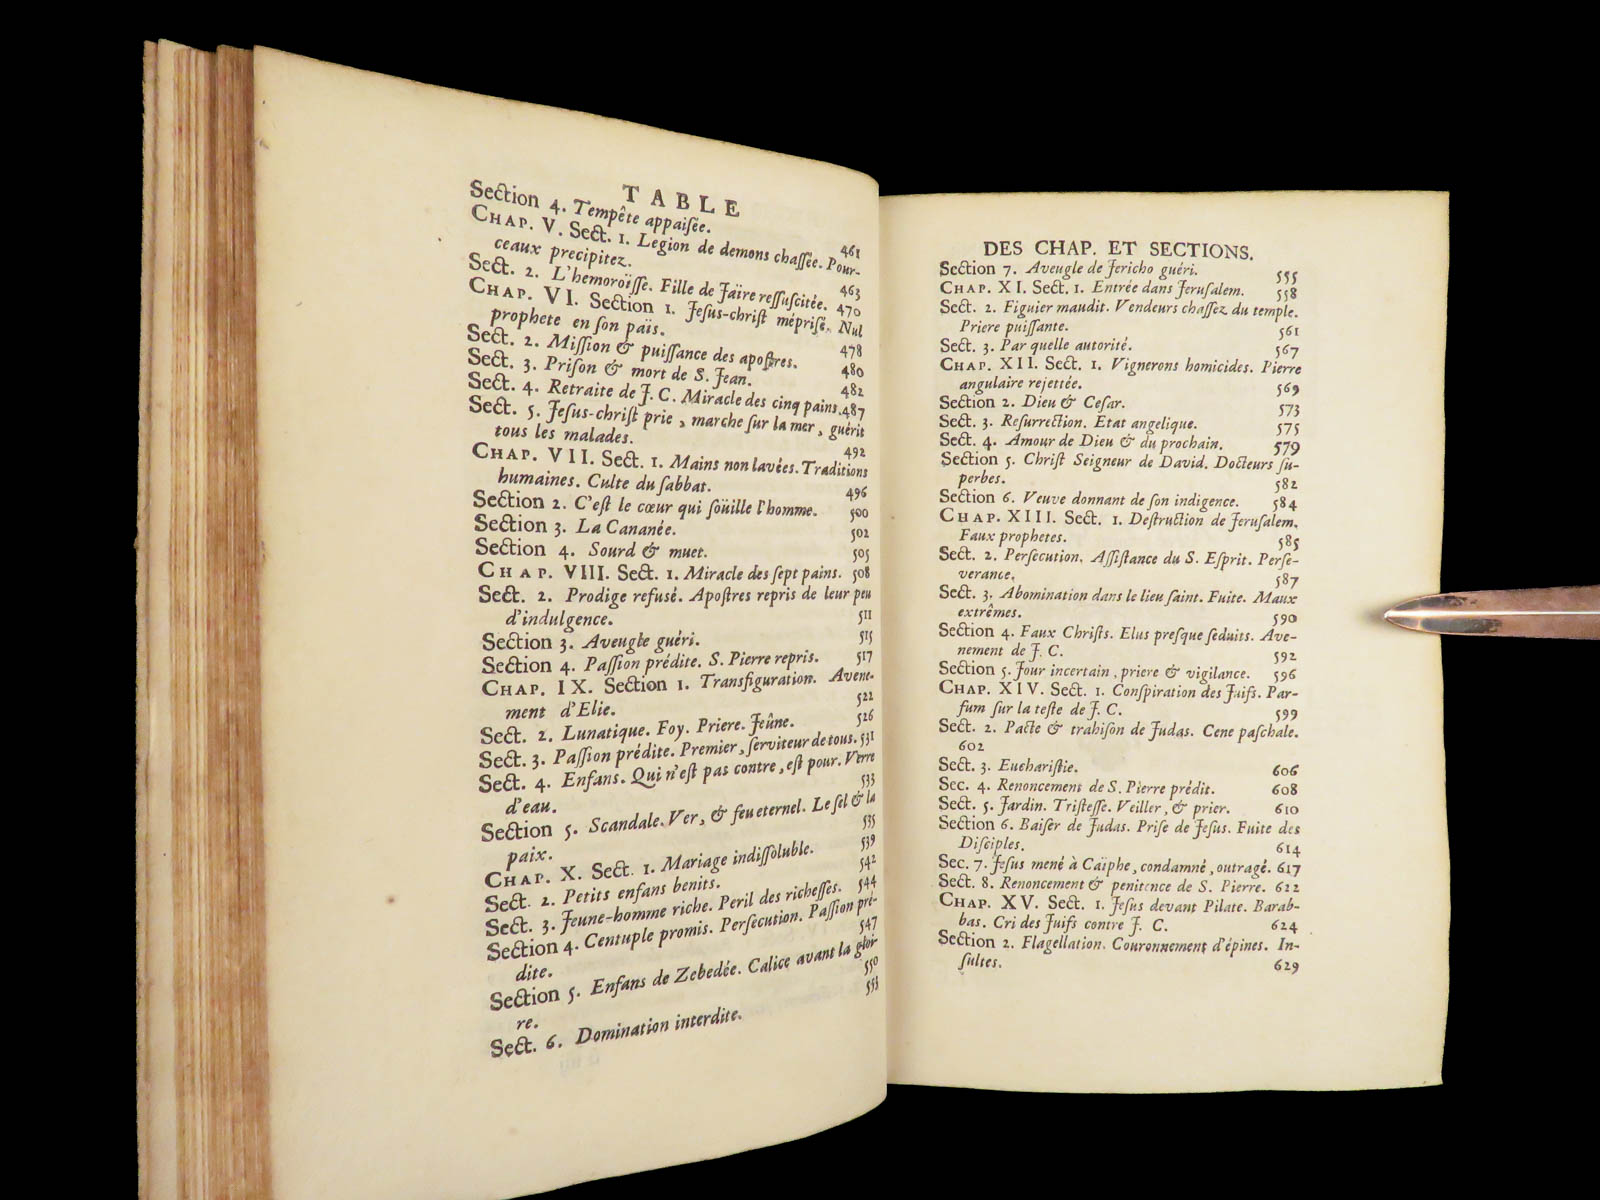 TABLE
Section 4. Tempête appaiſée. 461
CHAP. V. Sect. 1. Legion de demons chaſſée. Pour-
ceaux precipitez. 463
Sect. 2. L'hemoroïſſe. Fille de Jaïre reſſuſcitée. 470
CHAP. VI. Section 1. Jeſus-chriſt mépriſé. Nul
prophete en ſon païs. 478
Sect. 2. Miſſion & puiſſance des apoſtres. 480
Sect. 3. Priſon & mort de S. Jean. 482
Sect. 4. Retraite de J. C. Miracle des cinq pains. 487
Sect. 5. Jeſus-chriſt prie, marche ſur la mer, guérit
tous les malades. 492
CHAP. VII. Sect. 1. Mains non lavées. Traditions
humaines. Culte du ſabbat. 496
Section 2. C'eſt le cœur qui ſoüille l'homme. 500
Section 3. La Cananée. 502
Section 4. Sourd & muet. 505
CHAP. VIII. Sect. 1. Miracle des ſept pains. 508
Sect. 2. Prodige refuſé. Apoſtres repris de leur peu
d'indulgence. 511
Section 3. Aveugle guéri. 515
Section 4. Paſſion prédite. S. Pierre repris. 517
CHAP. IX. Section 1. Transfiguration. Avene-
ment d'Elie. 522
Sect. 2. Lunatique. Foy. Priere. Jeûne. 526
Sect. 3. Paſſion prédite. Premier, ſerviteur de tous. 531
Sect. 4. Enfans. Qui n'eſt pas contre, eſt pour. Verre
d'eau. 533
Section 5. Scandale. Ver, & feu eternel. Le ſel & la
paix. 535
CHAP. X. Sect. 1. Mariage indiſſoluble. 539
Sect. 2. Petits enfans benits. 542
Sect. 3. Jeune-homme riche. Peril des richeſſes. 544
Section 4. Centuple promis. Perſecution. Paſſion pré-
dite. 547
Section 5. Enfans de Zebedée. Calice avant la gloi-
re. 550
Sect. 6. Domination interdite. 553
DES CHAP. ET SECTIONS.
Section 7. Aveugle de Jericho guéri. 555
CHAP. XI. Sect. 1. Entrée dans Jeruſalem. 558
Sect. 2. Figuier maudit. Vendeurs chaſſez du temple.
Priere puiſſante. 561
Sect. 3. Par quelle autorité. 567
CHAP. XII. Sect. 1. Vignerons homicides. Pierre
angulaire rejettée. 569
Section 2. Dieu & Ceſar. 573
Sect. 3. Reſurrection. Etat angelique. 575
Sect. 4. Amour de Dieu & du prochain. 579
Section 5. Chriſt Seigneur de David. Docteurs ſu-
perbes. 582
Section 6. Veuve donnant de ſon indigence. 584
CHAP. XIII. Sect. 1. Deſtruction de Jeruſalem.
Faux prophetes. 585
Sect. 2. Perſecution. Aſſiſtance du S. Eſprit. Perſe-
verance. 587
Sect. 3. Abomination dans le lieu ſaint. Fuite. Maux
extrêmes. 590
Section 4. Faux Chriſts. Elus preſque ſeduits. Ave-
nement de J. C. 592
Section 5. Jour incertain, priere & vigilance. 596
CHAP. XIV. Sect. 1. Conſpiration des Juifs. Par-
fum ſur la teſte de J. C. 599
Sect. 2. Pacte & trahiſon de Judas. Cene paſchale.
602
Sect. 3. Euchariſtie. 606
Sec. 4. Renoncement de S. Pierre prédit. 608
Sect. 5. Jardin. Triſteſſe. Veiller, & prier. 610
Section 6. Baiſer de Judas. Priſe de Jeſus. Fuite des
Diſciples. 614
Sec. 7. Jeſus mené à Caïphe, condamné, outragé. 617
Sect. 8. Renoncement & penitence de S. Pierre. 622
CHAP. XV. Sect. 1. Jeſus devant Pilate. Barab-
bas. Cri des Juifs contre J. C. 624
Section 2. Flagellation. Couronnement d'épines. In-
ſultes. 629